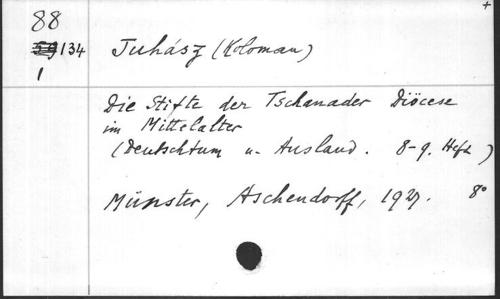 +
88
134 Juhász (Koloman)
1
Die Stifte der Tschanader Diöcese
im Mittelalter
(Deutschtum u. Ausland. 8-9. Heft)
Münster, Aschendorff, 1927. 8°